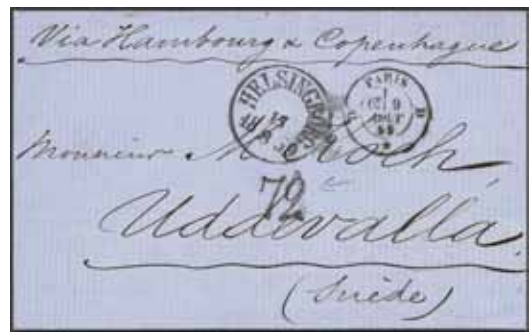 Via Hambourg & Copenhague
HELSINGBORG
PARIS
Monsieur M. Koch,
72
Uddevalla
(Suède)